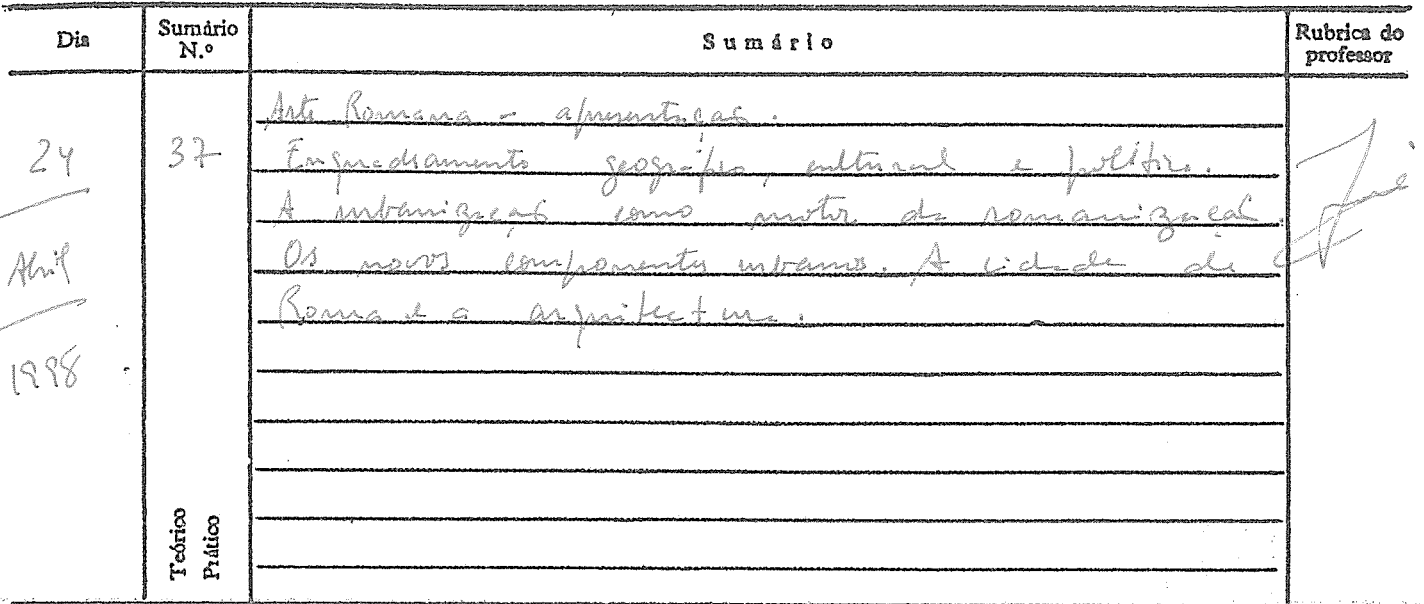 Dia
Sumário N.º
Sumário
Rubrica do professor
24
Abril
1998
37
Arte Romana - apresentação.
Enquadramento geográfico, cultural e político.
A urbanização como motor da romanização.
Os novos componentes urbanos. A cidade de
Roma e a arquitectura.
Teórico
Prático